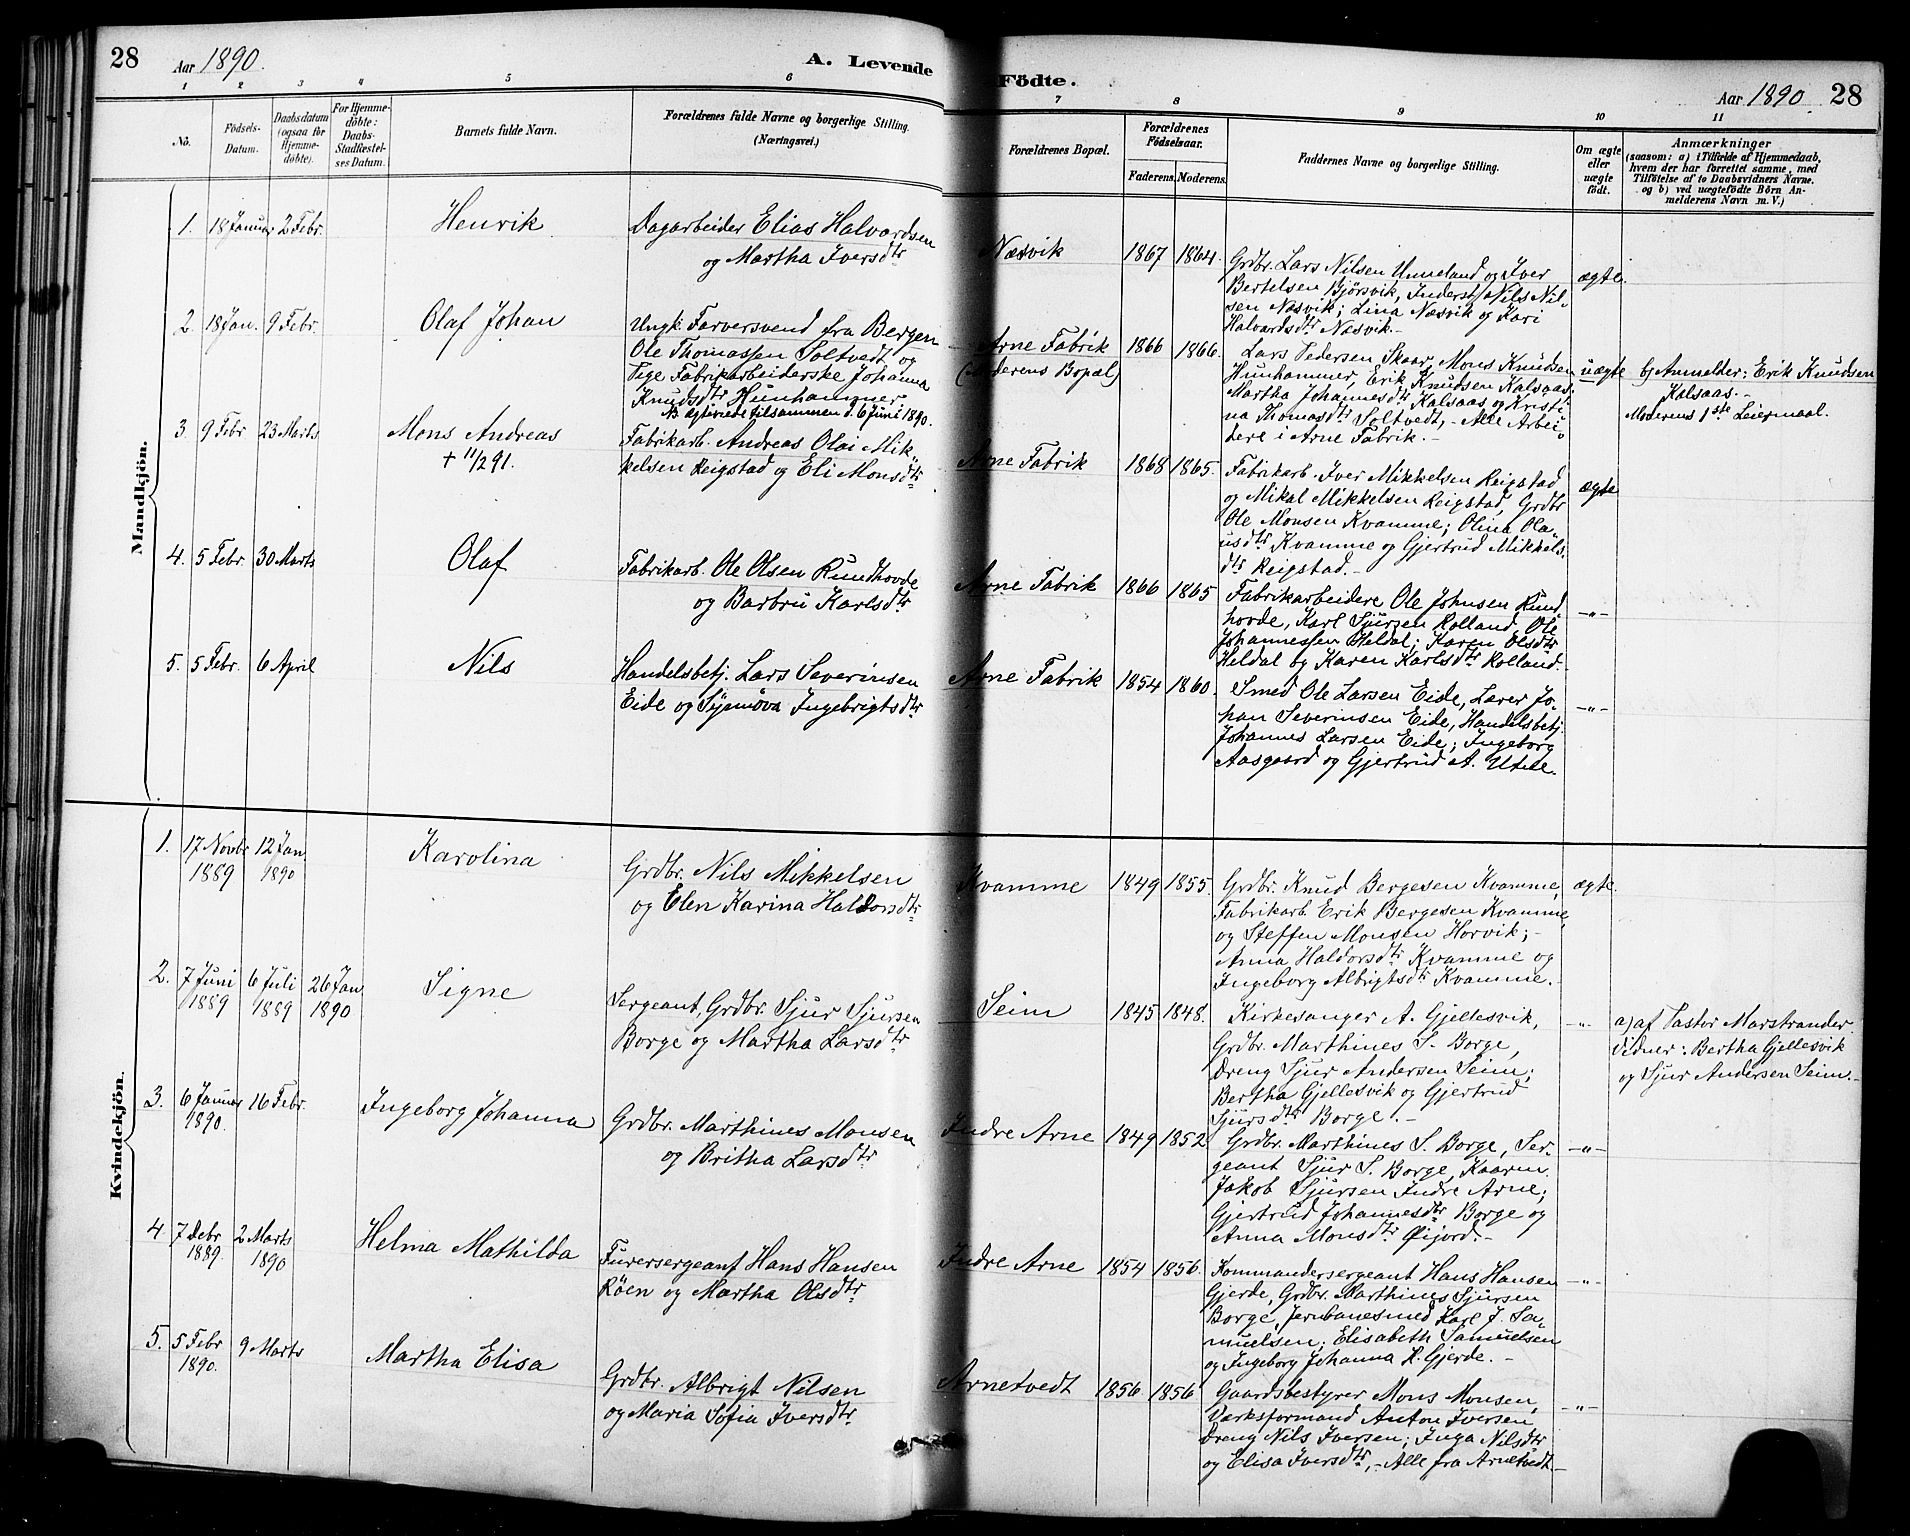 28 Aar 1890. A. Levende Födte. Aar 1890 28
1 2 3 4 5 6 7 8 9 10 11
No.
Födsels-
Datum.
Daabsdatum
(ogsaa for
Hjemme-
døbte).
For Hjemme-
døbte:
Daabs-
Stadfæstel-
ses Datum.
Barnets fulde Navn.
Forældrenes fulde Navne og borgerlige Stilling.
(Næringsvei.)
Forældrenes Bopæl.
Forældrenes
Födselsaar.
Faderens. Moderens.
Faddernes Navne og borgerlige Stilling.
Om ægte
eller
uægte
født.
Anmærkninger
(saasom: a) i Tilfælde af Hjemmedaab,
hvem der har forrettet samme, med
Tilføielse af to Daabsvidners Navne.
og b) ved uægtefödte Börn An-
melderens Navn m. V.)
Mandkjön.
1. 18 Januar 2 Febr.
Henrik
Dagarbeider Elias Halvardsen
og Martha Iversdtr
Næsvik 1867 1864.
Grdbr. Lars Nilsen Unneland og Iver
Bertelsen Bjørsvik, Inderst Nils Nil-
sen Næsvik; Lina Næsvik og Kari
Halvardsdtr Næsvik.-
ægte.
2. 18 Jan. 9 Febr.
Olaf Johan
Ungk. Farversvend fra Bergen
Ole Thomassen Soltvedt og
Pige Fabrikarbeiderske Johanna
Knudsdtr Hunhammer
NB. Ægteviede tilsammen d. 6 Juni 1890.
Arne Fabrik
(Moderens Bopæl)
1866 1866.
Lars Pedersen Skaar, Mons Knudsen
Hunhammer, Erik Knudsen Kalsaas,
Martha Johannesdtr Kalsaas og Kristi-
na Thomasdtr Soltvedt,- Alle Arbei-
dere i Arne Fabrik.-
uægte
b) Anmelder: Erik Knudsen
Kalsaas.-
Moderens 1ste Leiermaal.
3. 9 Febr 23 Marts
Mons Andreas
+ 11/2 91.
Fabrikarb. Andreas Olai Mik-
kelsen Reigstad og Eli Monsdtr
Arne Fabrik 1868 1865.
Fabrikarb. Iver Mikkelsen Reigstad
og Mikal Mikkelsen Reigstad, Grdbr
Ole Monsen Kvamme; Olina Ola-
usdtr Kvamme og Gjertrud Mikkels-
dtr Reigstad.-
ægte
4. 5 Febr 30 Marts
Olaf
Fabrikarb. Ole Olsen Rundhovde
og Barbru Karlsdtr
Arne Fabrik 1866 1865
Fabrikarbeidere Ole Johnsen Rund-
hovde, Karl Sjursen Rolland, Ole
Johannessen Heldal; Karen Olsdtr
Heldal og Karen Karlsdtr Rolland.
-"-
5. 5 Febr. 6 April
Nils
Handelsbetj. Lars Severinsen
Eide og Synnøva Ingebrigtsdtr
Arne Fabrik 1854 1860.
Smed Ole Larsen Eide, Lærer Jo-
han Severinsen Eide, Handelsbetj.
Johannes Larsen Eide; Ingeborg
Aasgaard og Gjertrud A. Utne.
-"-
Kvindekjön.
1. 17 Novbr 1889 12 Jan. 1890
Karolina
Grdbr. Nils Mikkelsen
og Elen Karina Haldorsdtr
Kvamme 1849 1855.
Grdbr. Knud Bergesen Kvamme,
Fabrikarb. Erik Bergesen Kvamme,
og Steffen Monsen Horvik;-
Anna Haldorsdtr Kvamme og
Ingeborg Albrigtsdtr Kvamme.-
ægte.
2. 7 Juni 1889 6 Juli 1889 26 Jan 1890
Signe
Sergeant, Grdbr. Sjur Sjursen
Borge og Martha Larsdtr
Seim 1845 1848.
Kirkesanger A. Gjellesvik,
Grdbr. Marthines S. Borge,
Dreng Sjur Andersen Seim;
Bertha Gjellesvik og Gjertrud
Sjursdtr Borge.-
-"-
a) af Pastor Marstrander.
Vidner: Bertha Gjellesvik
og Sjur Andersen Seim.-
3. 6 Januar 1890. 16 Febr.
Ingeborg Johanna
Grdbr. Marthines Monsen
og Britha Larsdtr
Indre Arne 1849 1852
Grdbr. Marthines S. Borge, Ser-
geant Sjur S. Borge, Kaarm.
Jakob Sjursen Indre Arne;
Gjertrud Johannesdtr Borge og
Anna Monsdtr Øijord.-
-"-
4 7 Debr 1889. 2 Marts 1890
Helma Mathilda
Furersergeant Hans Hansen
Røen og Martha Olsdtr
Indre Arne 1854 1856.
Kommandersergeant Hans Hansen
Gjerde, Grdbr. Marthines Sjursen
Borge, Jernbanesmed Karl J. Sa-
muelsen; Elisabeth Samuelsen
og Ingeborg Johanna H. Gjerde.-
-"-
5. 5 Febr 1890. 9 Marts
Martha Elisa
Grdbr. Albrigt Nilsen
og Maria Sofia Iversdtr
Arnetvedt 1856 1856
Gaardsbestyrer Mons Monsen,
Værksformand Anton Iversen,
Dreng Nils Iversen; Inga Nilsdtr
og Elisa Iversdtr,- Alle fra Arnetvedt.-
-"-